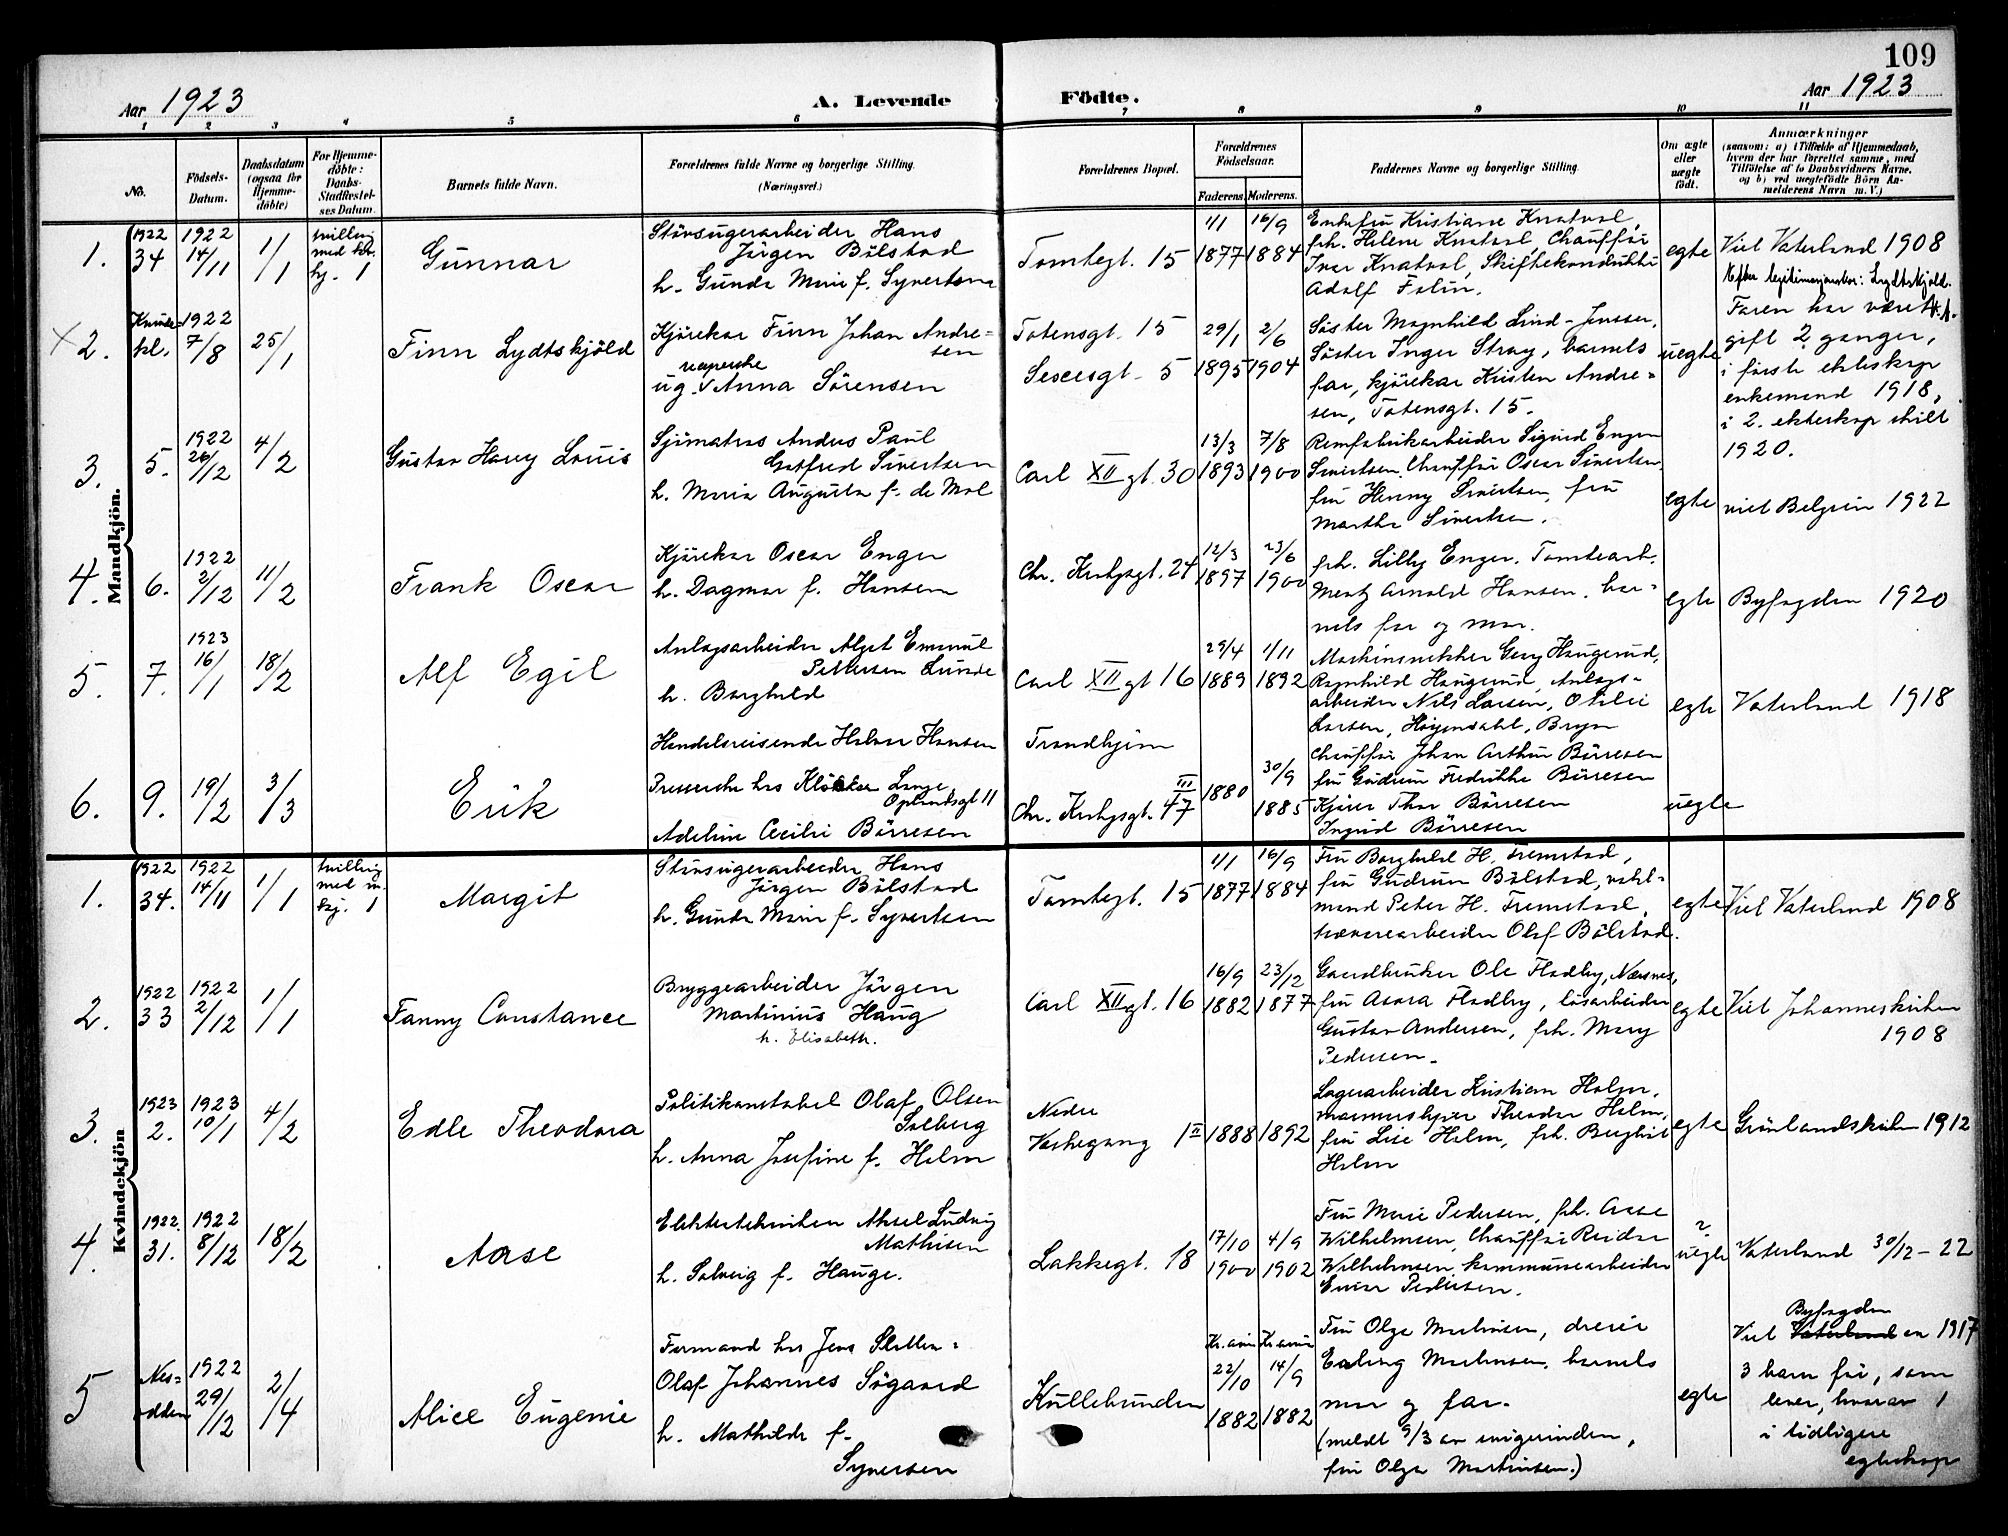 109
Aar 1923
A. Levende Födte.
Aar 1923
1 2 3 4 5 6 7 8 9 10 11
No.
Födsels-Datum.
Daabsdatum (ogsaa for Hjemmedöbte)
For Hjemmedöbte: Daabs-Stadfæstelses Datum.
Barnets fulde Navn.
Forældrenes fulde Navne og borgerlige Stilling.
(Næringsvei.)
Forældrenes Bopæl.
Forældrenes Födselsaar.
Faderens. Moderens.
Faddernes Navne og borgerlige Stilling.
Om ægte eller uægte födt.
Anmærkninger
(saasom: a) i Tilfælde af Hjemmedaab,
hvem der har forrettet samme, med
Tilföielse af to Daabsvidners Navne,
og b) ved uægtefödte Börn Anmelderens Navn m. V.)
Mandkjön.
1.
1922
34
1922
14/11
1/1
tvilling
med kv.
kj. 1
Gunnar
Stövsugerarbeider Hans
Jörgen Bölstad
h. Gunda Marie f. Syvertsen
Tomtegt. 15
1/1
1877
16/9
1884
Enkefru Kristiane Knatvol,
frk. Helene Knatvol, Chaufför
Ivar Knatvol, Skiftekonduktör
Adolf Folin.
egte
Viet Vaterland 1908
X 2.
1922
7/8
25/1
Finn Lydtskjöld
Kjörekar Finn Johan Andresen
ug. Anna Sörensen
Totensgt. 15
Sexesgt. 5
29/1
1895
2/6
1904
Söster Magnhild Lind-Jenssen,
Söster Inger Stray, barnets
far, kjörekar Kristen Andresen, Totensgt. 15.
uegte
Efter legitimasjonsbor: Lydtskjöld.
Faren har været
gift 2 ganger,
i förste ekteskap
enkemand 1918,
i 2. ekteskap skilt
1920.
3.
5.
1922
26/12
4/2
Gustav Harry Louis
Sjömatros Anders Paul
Gotfred Sivertsen
h. Maria Augusta f. de Mol
Carl XII gt. 30
13/3
1893
7/8
1900
Remfabrikarbeider Sigurd Enger
Sivertsen, Chaufför Oscar Sivertsen,
fru Henny Sivertsen, fru
Marthe Sivertsen.
egte
viet Belgien 1922
4.
6.
1922
2/12
11/2
Frank Oscar
Kjörekar Oscar Enger
h. Dagmar f. Hansen
Chr. Krohgsgt. 24
12/3
1897
23/6
1900
frk. Lilly Enger. Tomtearb.
Mentz Arnold Hansen, barnets far og mor.
egte
Byfogden 1920
5.
7.
1923
16/1
18/2
Alf Egil
Anlægsarbeider Alget Emanuel
Pettersen Lunde
h. Borghild
Carl XII gt 16
29/4
1889
1/11
1892
Maskinsnekker Georg Haugerud,
Ragnhild Haugerud, Anlægsarbeider Nils Larsen, Otilie
Larsen, Höyendahl, Bryn
egte
Vaterland 1918
6.
9.
19/2
3/3
Erik
Handelsreisende Halvor Hansen
Presserske hos
Oplandsgt 11
Adeline Cecilie Börresen
Trondhjem
Chr. Krohgsgt. 47 III
1880
30/9
1885
Chaufför Johan Arthur Börresen
fru Gudrun Fredrikke Börresen
Kjörer Thor Börresen
Ingrid Börresen
uegte
Kvindekjön
1.
1922
34.
1922
14/11
1/1
tvilling
med m.
kj. 1
Margit
Stövsugerarbeider Hans
Jörgen Bölstad
h. Gunda Marie f. Syvertsen
Tomtegt. 15
1/1
1877
16/9
1884
Fru Borghild H. Tremstad,
fru Gudrun Bölstad, vaktmand Peter H. Tremstad,
træverearbeider Olaf Bölstad.
egte
Viet Vaterland 1908
2.
1922
33
1922
2/12
1/1
Fanny Constance
Bryggearbeider Jörgen
Martinius Haug
h. Elisabeth.
Carl XII gt. 16
16/9
1882
23/12
1877
Gaardbruker Ole Fladby, Nærsnes,
fru Aasra Fladby, lösarbeider
Gustav Andersen, frk. Mary
Pedersen.
egte
Viet Johanneskirken
1908
3.
1923
2.
1923
10/1
4/2
Edle Theodora
Politikonstabel Olaf Olsen
Solberg
h. Anna Josefine f. Holm
Nedre
Vaskegang 1 II
1888
1892
Lagerarbeider Kristian Holm,
Theodor Holm,
fru Lise Holm, frk. Borghild
Holm
egte
Grönlandskirken 1912
4.
1922.
31.
1922
8/12
18/2
Aase
Elektrotekniker Aksel Ludvig
Mathisen
h. Solveig f. Hauge.
Lakkegt. 18
17/10
1900
4/9
1902
Fru Marie Pedersen, frk. Aase
Wilhelmsen, Chaufför Reidar
Wilhelmsen, kommunearbeider
Einar Pedersen.
?
uegte
Vaterland 30/12-22
5
Nesodden
1922
29/12
2/4
Alice Eugenie
Formand hos Jens
Olaf Johannes Sögaard
h. Mathilde f.
Syversen
Hullebunden
Kr.ania
22/10
1882
Kr.ania
14/9
1882
Fru Olga Martinsen, dreier
Erling Martinsen, barnets
mor og far.
(meldt 9/3 av svigerinden,
fru Olga Martinsen.)
egte
Byfogden
Viet Vaterland en 1917
3 barn för, som
lever, hvorav 1
i tidligere
egteskap